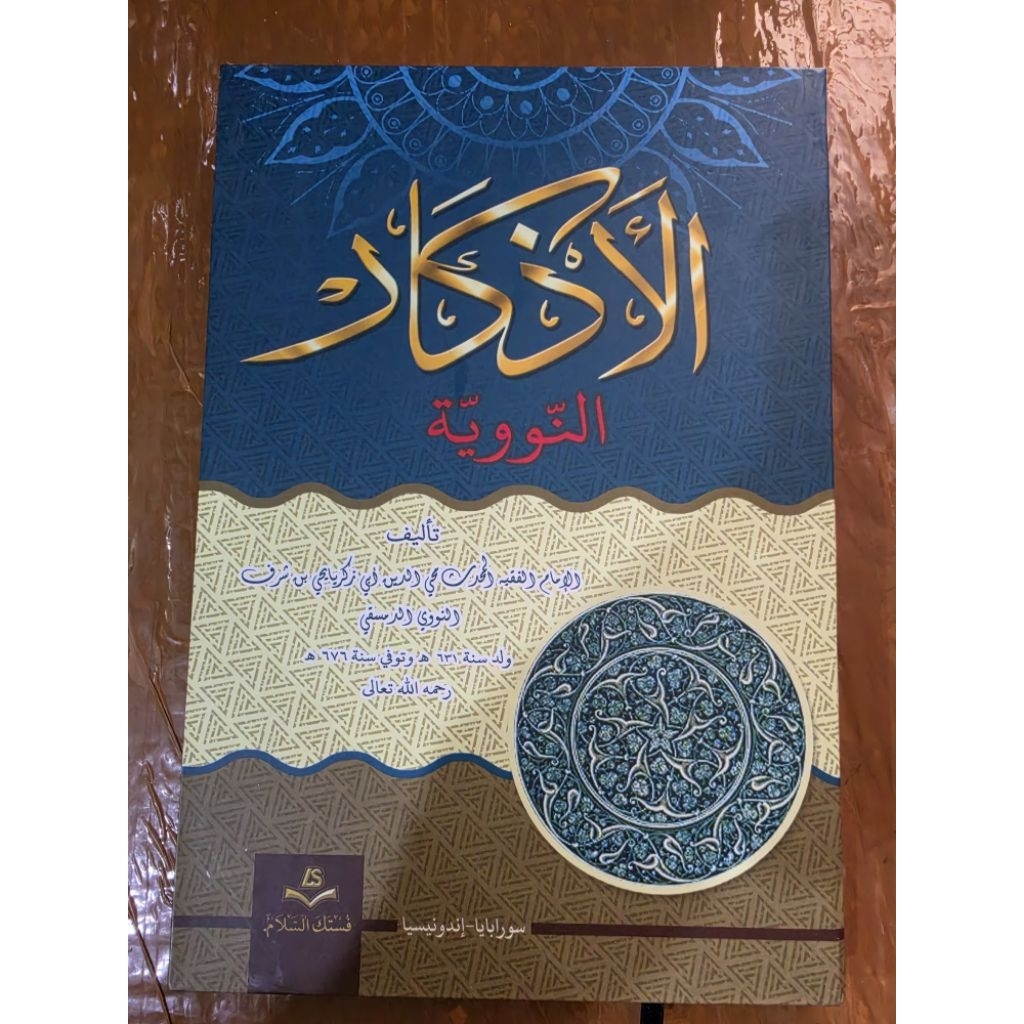 الأذكار
النّوويّة
تأليف
الإمام الفقيه المحدث محي الدين أبي زكريا يحي بن شرف
النووي الدمسقي
ولد سنة ٦٣١ ه‍ وتوفي سنة ٦٧٦ ه‍
رحمه الله تعالى
LS
فستك السلام
سورابايا-إندونيسيا